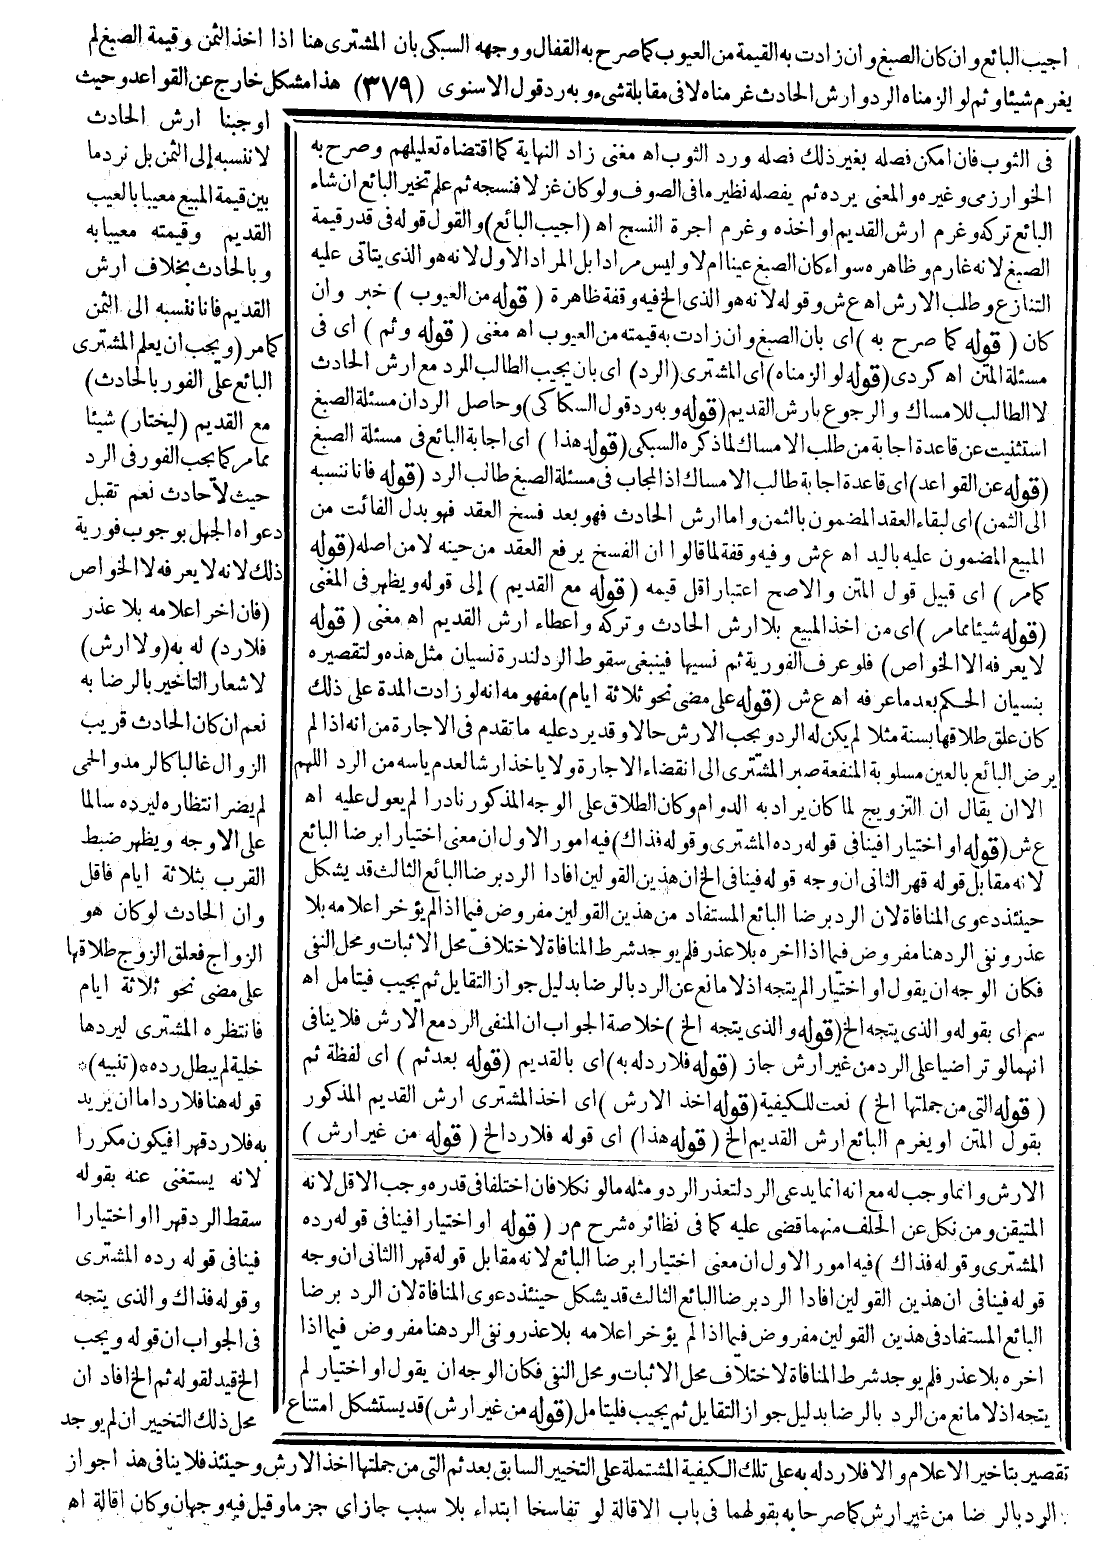 اجيب البائع وان كان الصبغ وان زادت به القيمة من العيوب كما صرح به القفال ووجهه السبكى بان المشترى هنا اذا اخذ الثمن وقيمة الصبغ لم
يغرم شيئا وثم لو الزمناه الرد وارش الحادث غرمناه لا فى مقابلة شىء وبه رد قول الاسنوى (٣٧٩) هذا مشكل خارج عن القواعد وحيث
اوجبنا ارش الحادث
لا ننسبه إلى الثمن بل نرد ما
بين قيمة المبيع معيبا بالعيب
القديم وقيمته معيبا به
وبالحادث بخلاف ارش
القديم فاننا ننسبه الى الثمن
كما مر (ويجب ان يعلم المشترى
البائع على الفور بالحادث)
مع القديم (ليختار) شيئا
مما مر كما يجب الفور فى الرد
حيث لا حادث نعم تقبل
دعواه الجهل بوجوب فورية
ذلك لانه لا يعرفه الا الخواص
(فان اخر اعلامه بلا عذر
فلا رد) له به (ولا ارش)
لاشعار التاخير بالرضا به
نعم ان كان الحادث قريب
الزوال غالبا كالرمد والحمى
لم يضر انتظاره ليرده سالما
على الاوجه ويظهر ضبط
القرب بثلاثة ايام فاقل
وان الحادث لو كان هو
الزواج فعلق الزوج طلاقها
على مضى نحو ثلاثة ايام
فانتظره المشترى ليردها
خلية لم يبطل رده *(تنبيه)*
قوله هنا فلا رد اما ان يريد
به فلا رد قهرا فيكون مكررا
لانه يستغنى عنه بقوله
سقط الرد قهرا او اختيارا
فينافى قوله رده المشترى
وقوله فذاك والذى يتجه
فى الجواب ان قوله ويجب
الخ قيد لقوله ثم الخ افاد ان
محل ذلك التخيير ان لم يوجد
تقصير بتاخير الاعلام والا فلا رد له به على تلك الكيفية المشتملة على التخيير السابق بعد ثم التى من جملتها اخذ الارش وحينئذ فلا ينافى هذا جواز
الرد بالرضا من غير ارش كما صرحا به بقولهما فى باب الاقالة لو تفاسخا ابتداء بلا سبب جاز اى جزما وقيل فيه وجهان وكان اقالة اه
فى الثوب فان امكن فصله بغير ذلك فصله ورد الثوب اه مغنى زاد النهاية كما اقتضاه تعليلهم وصرح به
الخوارزمى وغيره والمعنى يرده ثم يفصله نظير ما فى الصوف ولو كان غزلا فنسجه ثم علم تخير البائع ان شاء
البائع تركه وغرم ارش القديم او اخذه وغرم اجرة النسج اه (اجيب البائع) والقول قوله فى قدر قيمة
الصبغ لانه غارم وظاهره سواء كان الصبغ عينا ام لا وليس مرادا بل المراد الاول لانه هو الذى يتاتى عليه
التنازع وطلب الارش اه ع ش وقوله لانه هو الذى الخ فيه وقفة ظاهرة (قوله من العيوب) خبر وان
كان (قوله كما صرح به) اى بان الصبغ وان زادت به قيمته من العيوب اه مغنى (قوله وثم) اى فى
مسئلة المتن اه كردى (قوله لو الزمناه) اى المشترى (الرد) اى بان يجيب الطالب للرد مع ارش الحادث
لا الطالب للامساك والرجوع بارش القديم (قوله وبه رد قول السكاكى) وحاصل الرد ان مسئلة الصبغ
استثنيت عن قاعدة اجابة من طلب الامساك لما ذكره السبكى (قوله هذا) اى اجابة البائع فى مسئلة الصبغ
(قوله عن القواعد) اى قاعدة اجابة طالب الامساك اذ المجاب فى مسئلة الصبغ طالب الرد (قوله فاننا ننسبه
الى الثمن) اى لبقاء العقد المضمون بالثمن واما ارش الحادث فهو بعد فسخ العقد فهو بدل الفائت من
المبيع المضمون عليه باليد اه ع ش وفيه وقفة لما قالوا ان الفسخ يرفع العقد من حينه لا من اصله (قوله
كما مر) اى قبيل قول المتن والاصح اعتبار اقل قيمه (قوله مع القديم) إلى قوله ويظهر فى المغنى
(قوله شيئا مما مر) اى من اخذ المبيع بلا ارش الحادث وتركه واعطاء ارش القديم اه مغنى (قوله
لا يعرفه الا الخواص) فلو عرف الفورية ثم نسيها فينبغى سقوط الرد لندرة نسيان مثل هذه ولتقصيره
بنسيان الحكم بعد ما عرفه اه ع ش (قوله على مضى نحو ثلاثة ايام) مفهومه انه لو زادت المدة على ذلك
كان علق طلاقها بسنة مثلا لم يكن له الرد ويجب الارش حالا وقد يرد عليه ما تقدم فى الاجارة من انه اذا لم
يرض البائع بالعين مسلوبة المنفعة صبر المشترى الى انقضاء الاجارة ولا ياخذ ارشا لعدم ياسه من الرد اللهم
الا ان يقال ان التزويج لما كان يراد به الدوام وكان الطلاق على الوجه المذكور نادرا لم يعول عليه اه
ع ش (قوله او اختيارا فينافى قوله رده المشترى وقوله فذاك) فيه امور الاول ان معنى اختيارا برضا البائع
لانه مقابل قوله قهرا الثانى ان وجه قوله فينافى الخ ان هذين القولين افادا الرد برضا البائع الثالث قد يشكل
حينئذ دعوى المنافاة لان الرد برضا البائع المستفاد من هذين القولين مفروض فيما اذا لم يؤخر اعلامه بلا
عذر ونفى الرد هنا مفروض فيما اذا اخره بلا عذر فلم يوجد شرط المنافاة لاختلاف محل الاثبات ومحل النفى
فكان الوجه ان يقول او اختيارا لم يتجه اذ لا مانع عن الرد بالرضا بدليل جواز التقايل ثم يجيب فيتامل اه
سم اى بقوله والذى يتجه الخ (قوله والذى يتجه الخ) خلاصة الجواب ان المنفى الرد مع الارش فلا ينافى
انهما لو تراضيا على الرد من غير ارش جاز (قوله فلا رد له به) اى بالقديم (قوله بعد ثم) اى لفظة ثم
(قوله التى من جملتها الخ) نعت للكيفية (قوله اخذ الارش) اى اخذ المشترى ارش القديم المذكور
بقول المتن او يغرم البائع ارش القديم الخ (قوله هذا) اى قوله فلا رد الخ (قوله من غير ارش)
الارش وانما وجب له مع انه انما يدعى الرد لتعذر الرد ومثله ما لو نكلا فان اختلفا فى قدره وجب الاقل لانه
المتيقن ومن نكل عن الحلف منهما قضى عليه كما فى نظائره شرح م ر (قوله او اختيارا فينافى قوله رده
المشترى وقوله فذاك) فيه امور الاول ان معنى اختيارا برضا البائع لانه مقابل قوله قهرا الثانى ان وجه
قوله فينافى ان هذين القولين افادا الرد برضا البائع الثالث قد يشكل حينئذ دعوى المنافاة لان الرد برضا
البائع المستفاد فى هذين القولين مفروض فيما اذا لم يؤخر اعلامه بلا عذر ونفى الرد هنا مفروض فيما اذا
اخره بلا عذر فلم يوجد شرط المنافاة لاختلاف محل الاثبات ومحل النفى فكان الوجه ان يقول او اختيار لم
يتجه اذ لا مانع من الرد بالرضا بدليل جواز التقايل ثم يجيب فليتامل (قوله من غير ارش) قد يستشكل امتناع